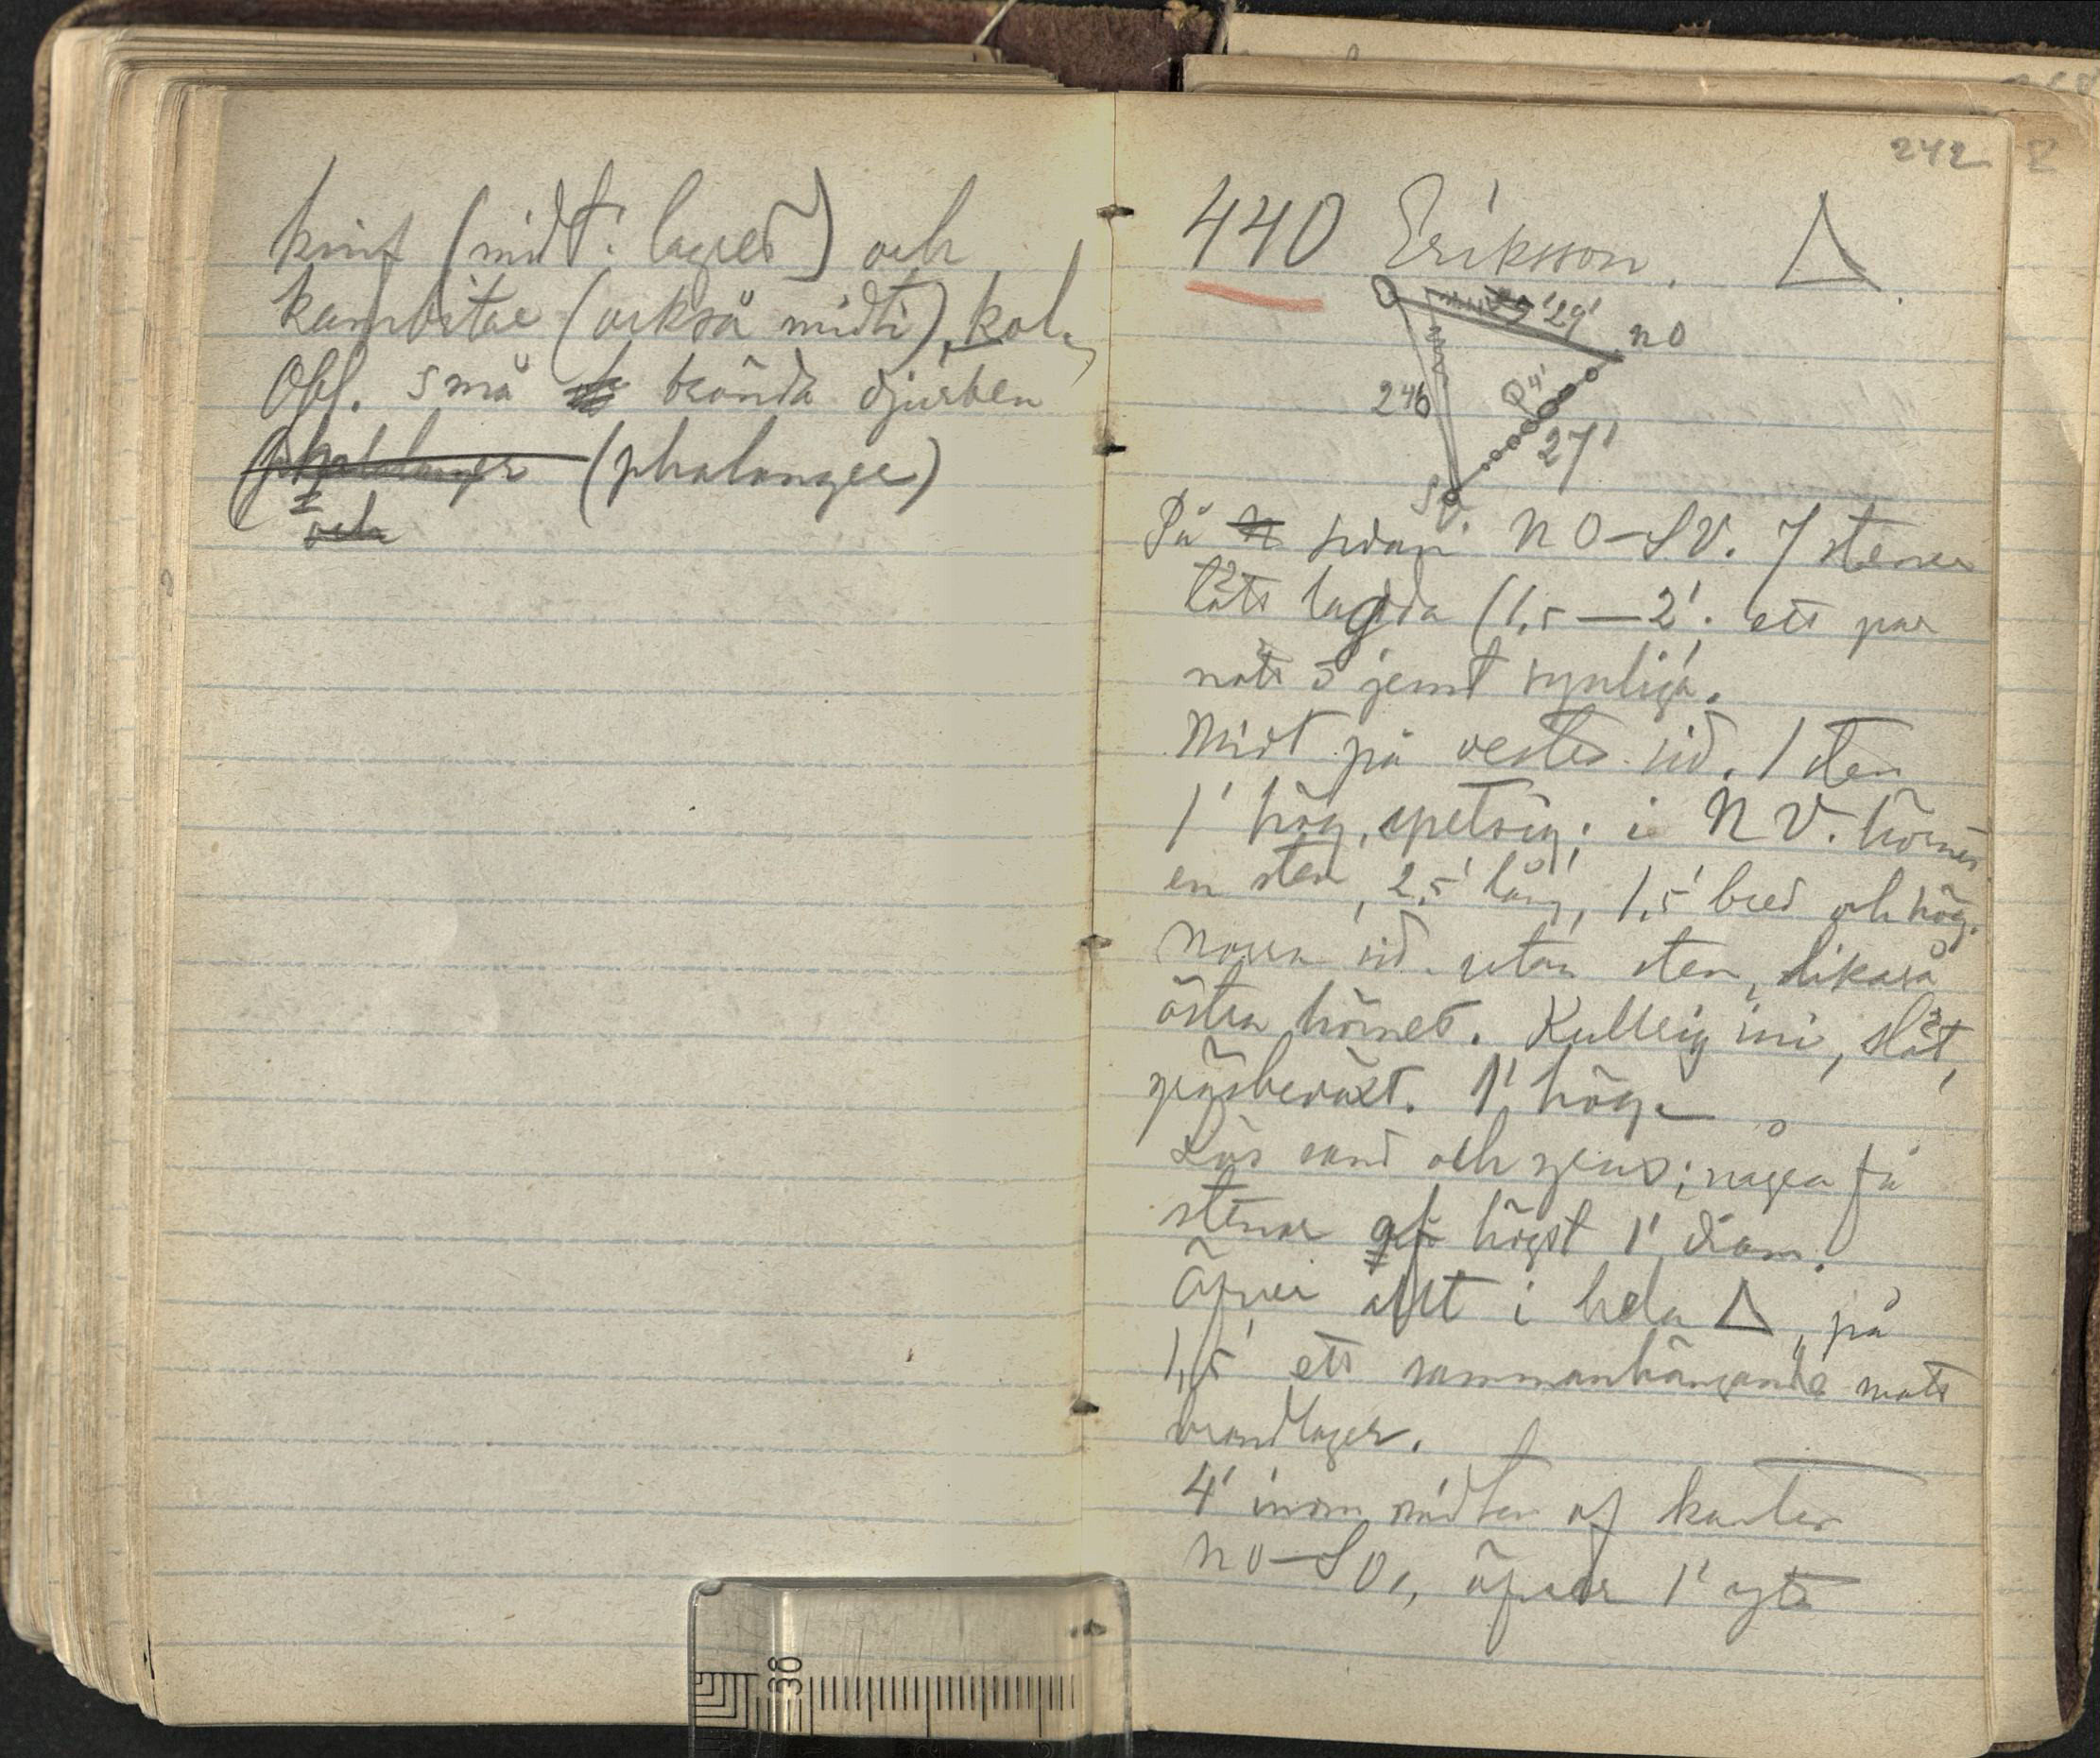 knif (midt. lagret) och
kambitar (också midti), kol.
Obs. små brända djurben
phalanger (phalanger)
och
242
440 Eriksson.
29'
NO
24'
Q 4'
27'
SV.
På sidan NO-SV. 7 stenar
tätt lagda (1,5 - 2'. ett par
nätt o jemt synliga.
Midt på vestra sid. 1 sten
1' hög, spetsig; i NV. hörnet
en sten, 2,5' lång, 1,5' bred och hög.
Norra sid. utan sten, likaså
östra hörnet. Kullrig ini, slät,
gräsbeväxt. 1' hög.
Lös sand och grus; några få
stenar af högst 1' diam.
Öfver allt i hela △, på
1,5' ett sammanhängande matt
brandlager.
4' inom midten af kanten
NO-SV, öfver 1' yta